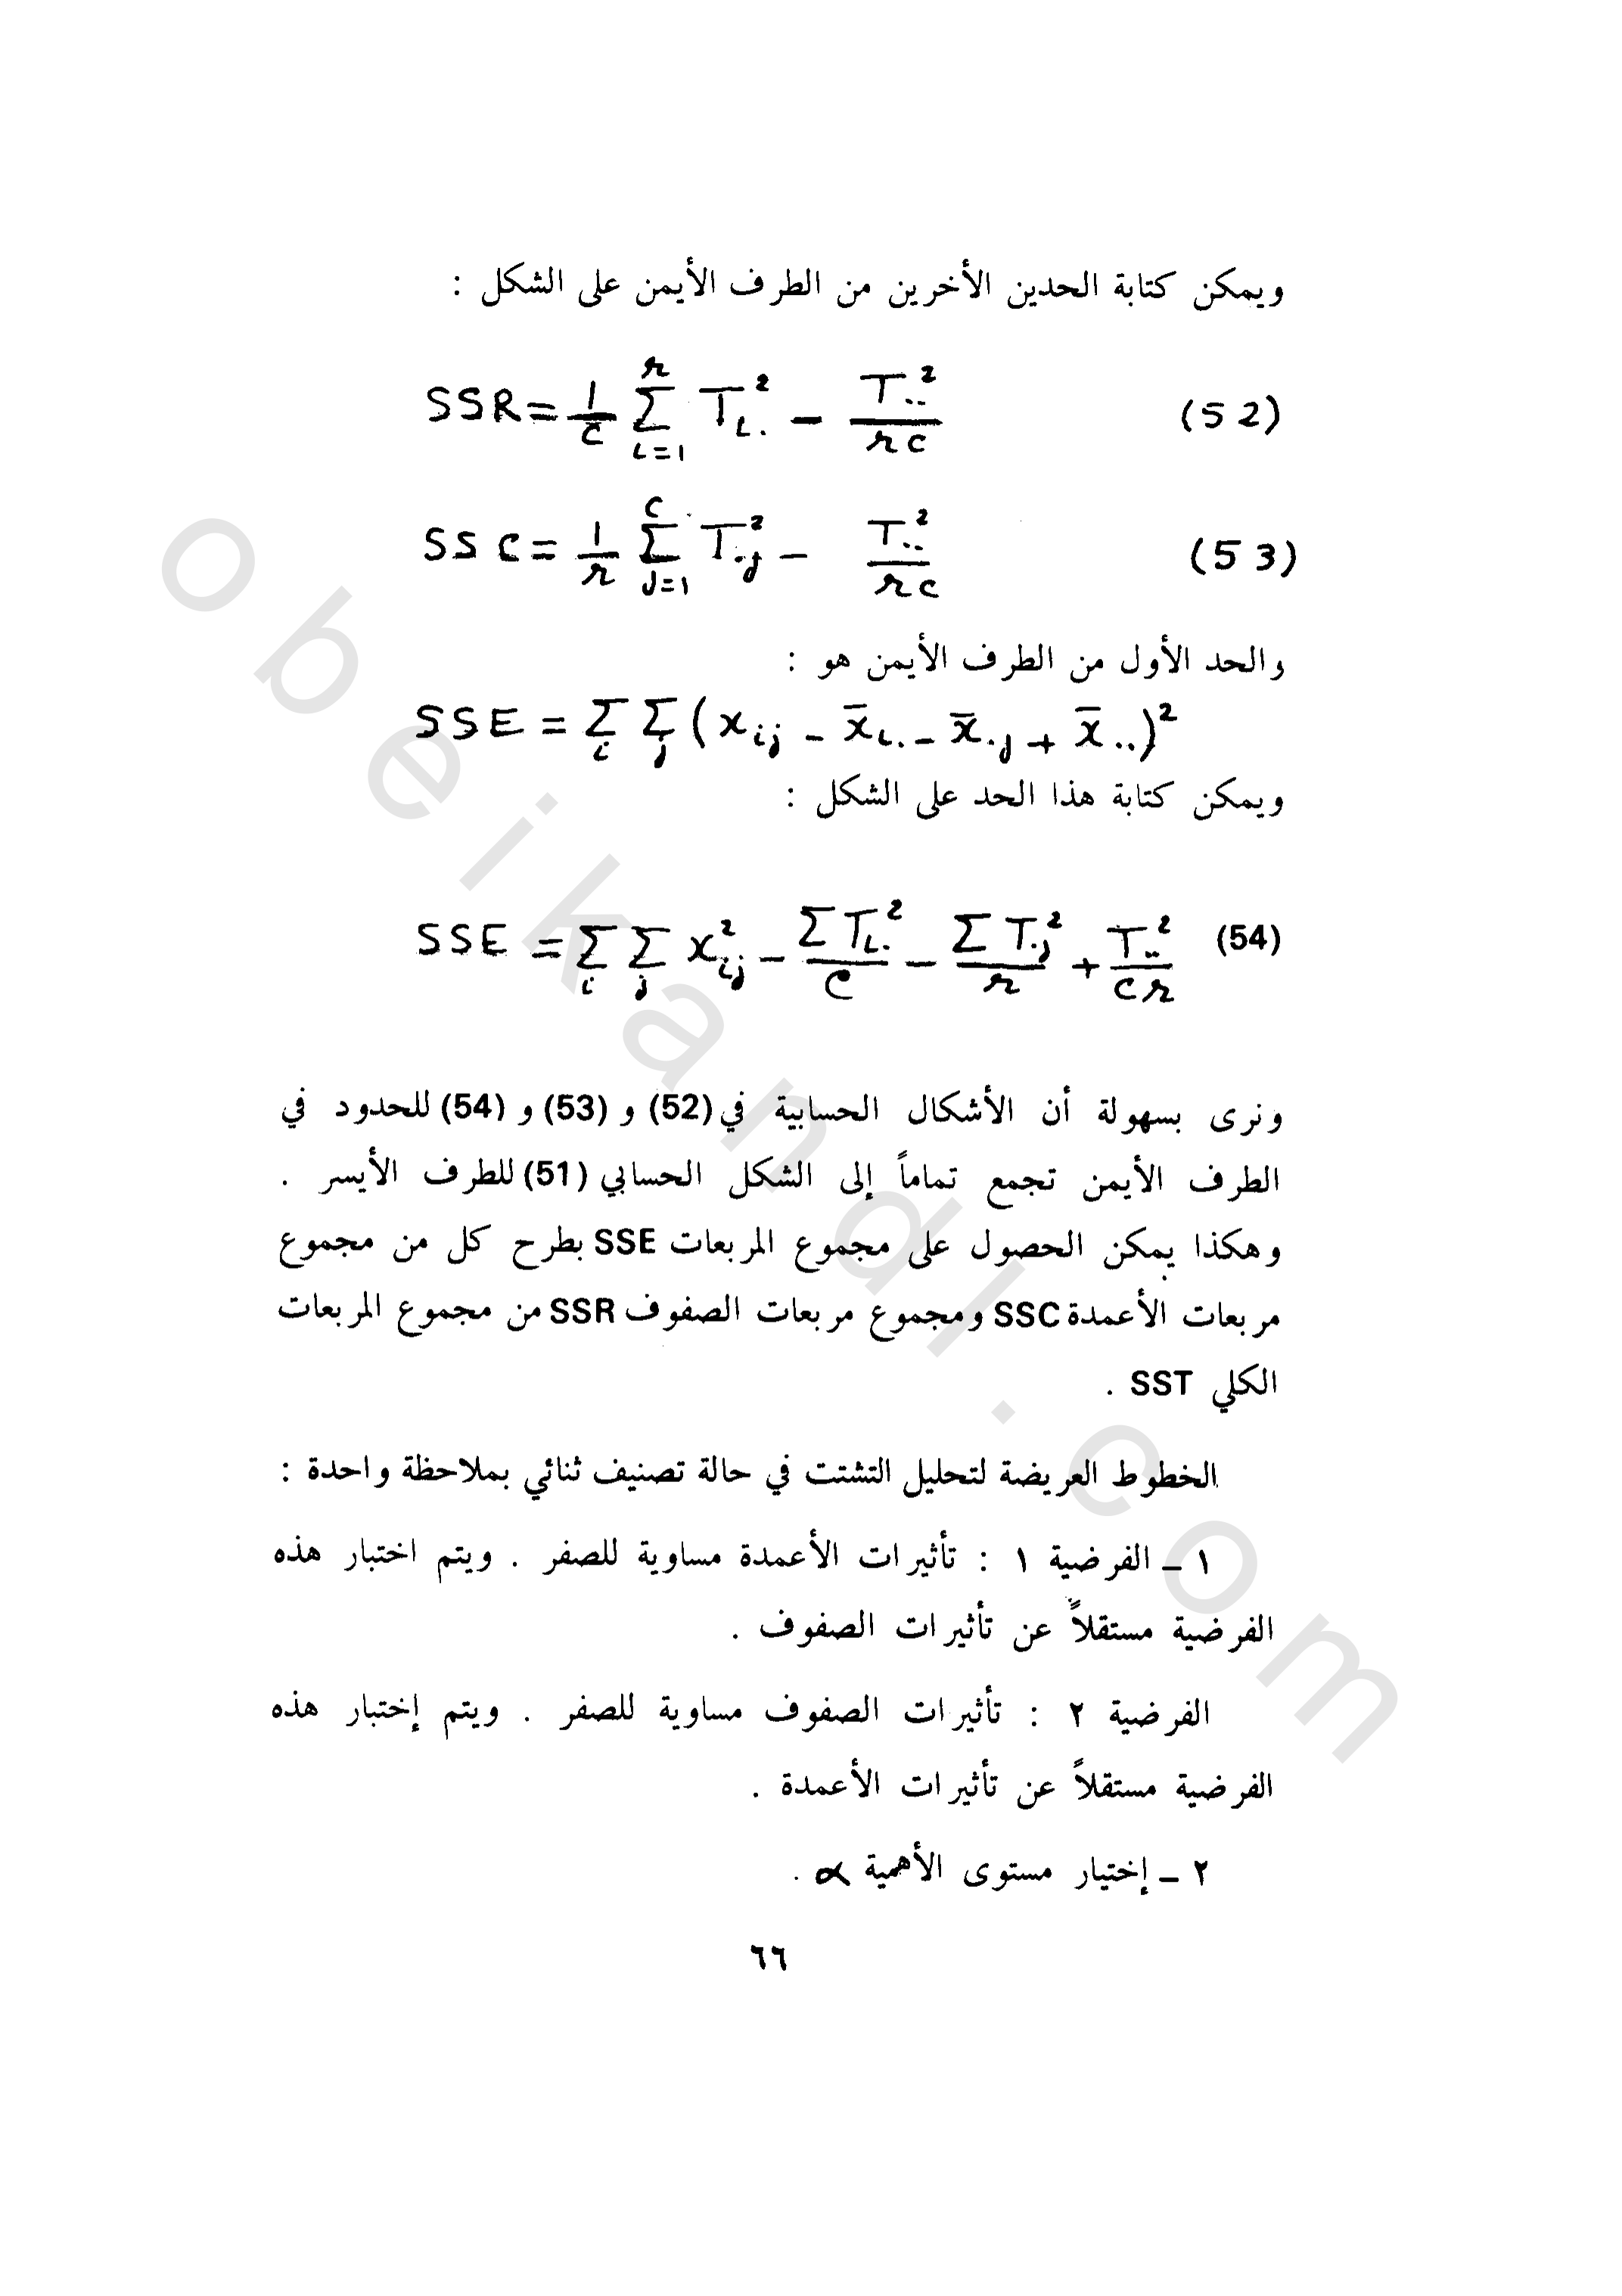 ويمكن كتابة الحدين الأخرين من الطرف الأيمن على الشكل :
SSR = \frac{1}{c} \sum_{i=1}^{r} T_{i.}^{2} - \frac{T_{..}^{2}}{rc} (52)
SSC = \frac{1}{r} \sum_{j=1}^{c} T_{.j}^{2} - \frac{T_{..}^{2}}{rc} (53)
والحد الأول من الطرف الأيمن هو :
SSE = \sum_{i} \sum_{j} (x_{ij} - \bar{x}_{i.} - \bar{x}_{.j} + \bar{x}_{..})^{2}
ويمكن كتابة هذا الحد على الشكل :
SSE = \sum_{i} \sum_{j} x_{ij}^{2} - \frac{\sum T_{i.}^{2}}{c} - \frac{\sum T_{.j}^{2}}{r} + \frac{T_{..}^{2}}{cr} (54)
ونرى بسهولة أن الأشكال الحسابية في (52) و (53) و (54) للحدود في
الطرف الأيمن تجمع تماماً إلى الشكل الحسابي (51) للطرف الأيسر .
وهكذا يمكن الحصول على مجموع المربعات SSE بطرح كل من مجموع
مربعات الأعمدة SSC ومجموع مربعات الصفوف SSR من مجموع المربعات
الكلي SST .
الخطوط العريضة لتحليل التشتت في حالة تصنيف ثنائي بملاحظة واحدة :
١ - الفرضية ١ : تأثيرات الأعمدة مساوية للصفر . ويتم اختبار هذه
الفرضية مستقلاً عن تأثيرات الصفوف .
الفرضية ٢ : تأثيرات الصفوف مساوية للصفر . ويتم إختبار هذه
الفرضية مستقلاً عن تأثيرات الأعمدة .
٢ - إختيار مستوى الأهمية α .
٦٦
obeikandl.com